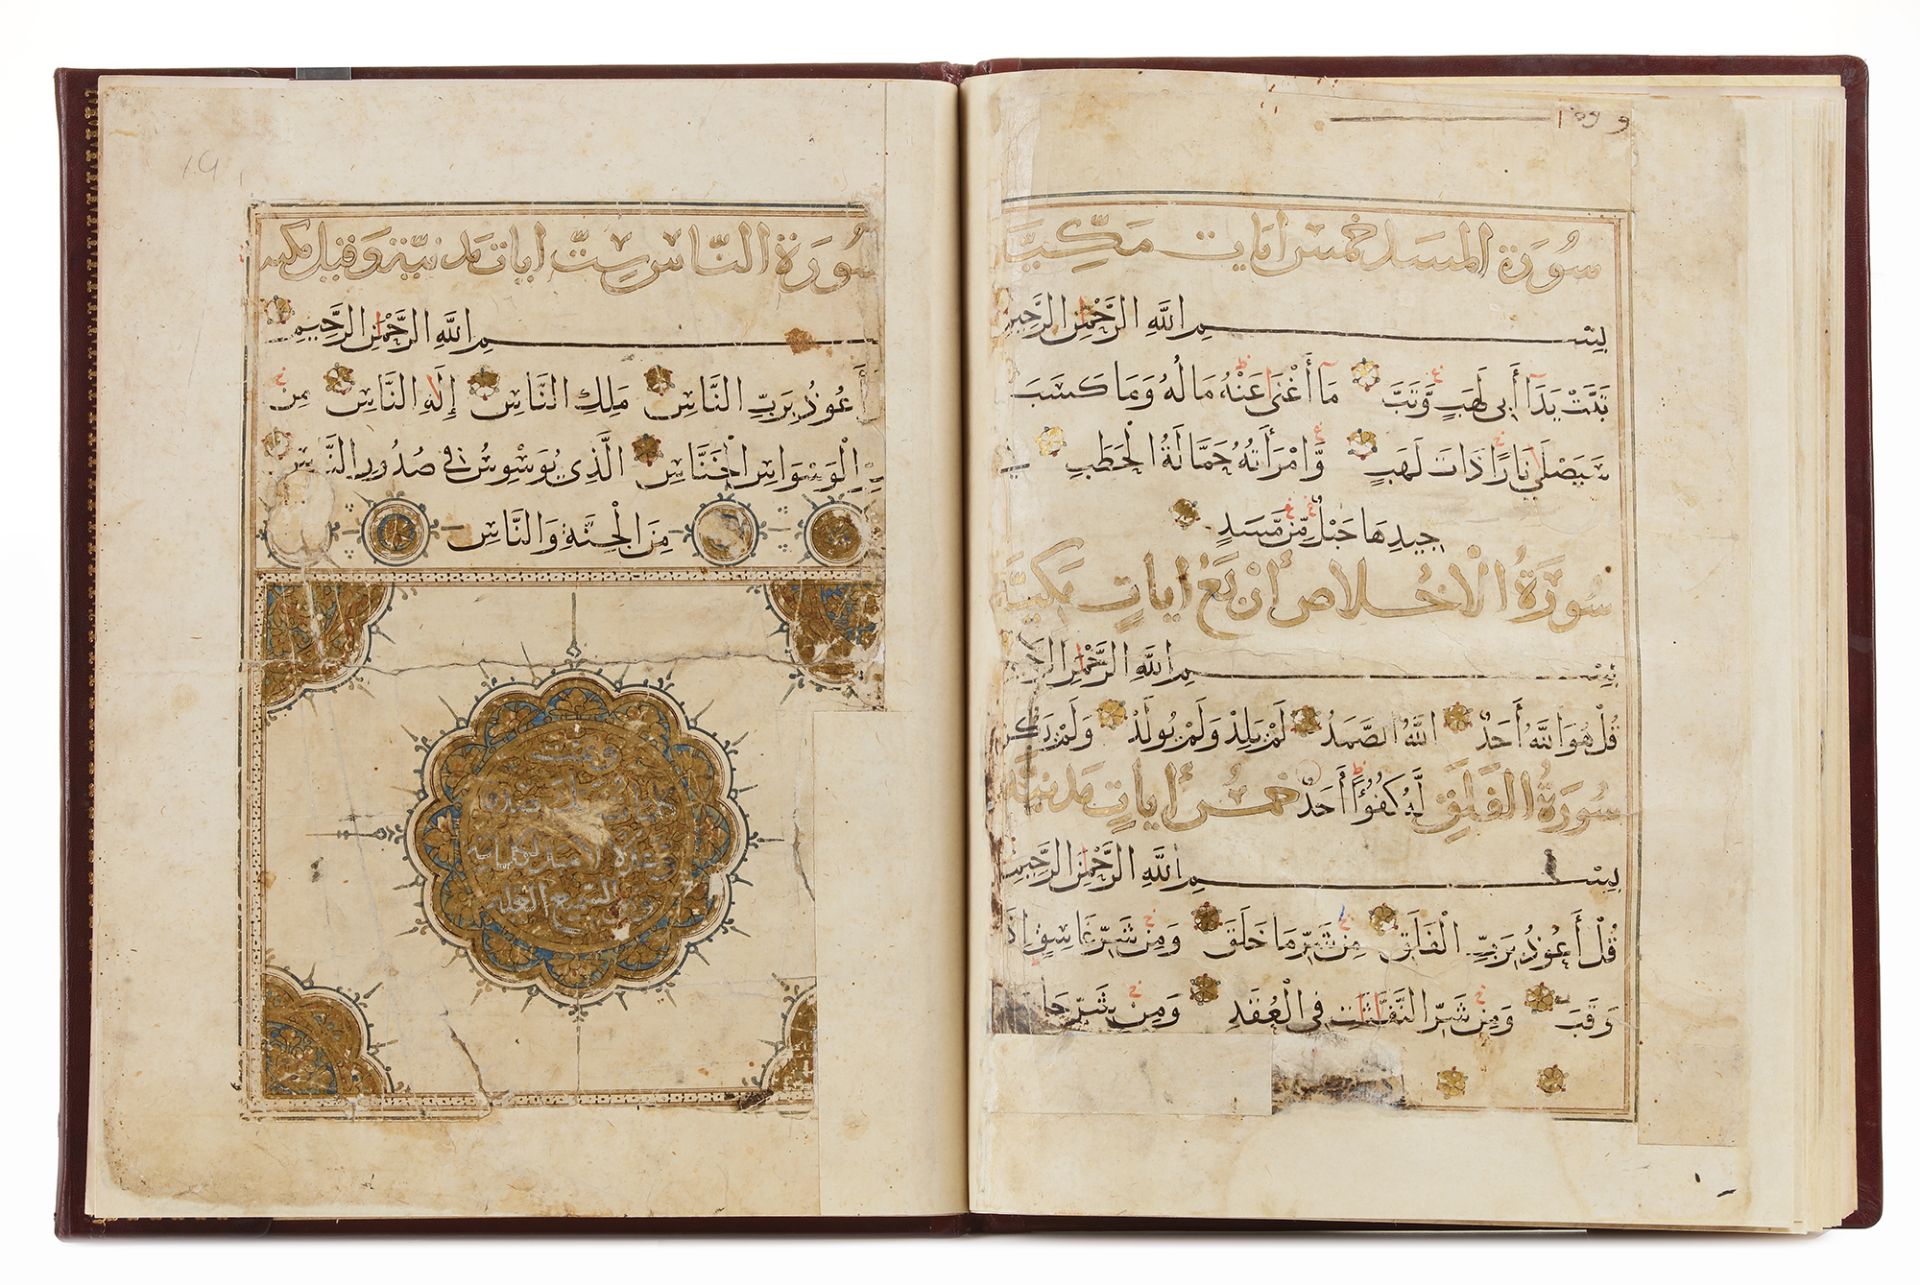 سُورَة المسَد خمسُ ايات مَكِّيَّة
بِسْمِ اللَّهِ الرَّحْمٰنِ الرَّحِيمِ
تَبَّتْ يَدَا أَبِي لَهَبٍ وَّتَبَّ مَا أَغْنَىٰ عَنْهُ مَالُهُ وَمَا كَسَبَ
سَيَصْلَىٰ نَارًا ذَاتَ لَهَبٍ وَّامْرَأَتُهُ حَمَّالَةُ الْحَطَبِ فِي
جِيدِهَا حَبْلٌ مِّن مَّسَدٍ
سُورَةُ الْاخلاص أَرْبَعُ ايَاتٍ مَكِيَّة
بِسْمِ اللَّهِ الرَّحْمٰنِ
قُلْ هُوَ اللَّهُ أَحَدٌ اللَّهُ الصَّمَدُ لَمْ يَلِدْ وَلَمْ يُولَدْ وَلَمْ يَكُن
سُورَةُ الفَلَقِ لَّهُ كُفُوًا أَحَدٌ خمسُ أيَاتٍ مَدَنيَّة
بِسْمِ اللَّهِ الرَّحْمٰنِ الرَّحِيمِ
قُلْ أَعُوذُ بِرَبِّ الْفَلَقِ مِن شَرِّ مَا خَلَقَ وَمِن شَرِّ غَاسِقٍ إِذَا
وَقَبَ وَمِن شَرِّ النَّفَّاثَاتِ فِي الْعُقَدِ وَمِنْ شَرِّ حَا
سُورَة النَّاس سِتّ ايات مَدَنيَّة وَقيل مكية
بِسْمِ اللَّهِ الرَّحْمٰنِ الرَّحِيمِ
أَعُوذُ بِرَبِّ النَّاسِ مَلِكِ النَّاسِ إِلَٰهِ النَّاسِ مِن
شَرِّ الْوَسْوَاسِ الْخَنَّاسِ الَّذِي يُوَسْوِسُ فِي صُدُورِ النَّاسِ
مِنَ الْجِنَّةِ وَالنَّاسِ
وتمت
كلمت ربك صدقا
وعدلا لا مبدل لكلماته
وهو السميع العليم